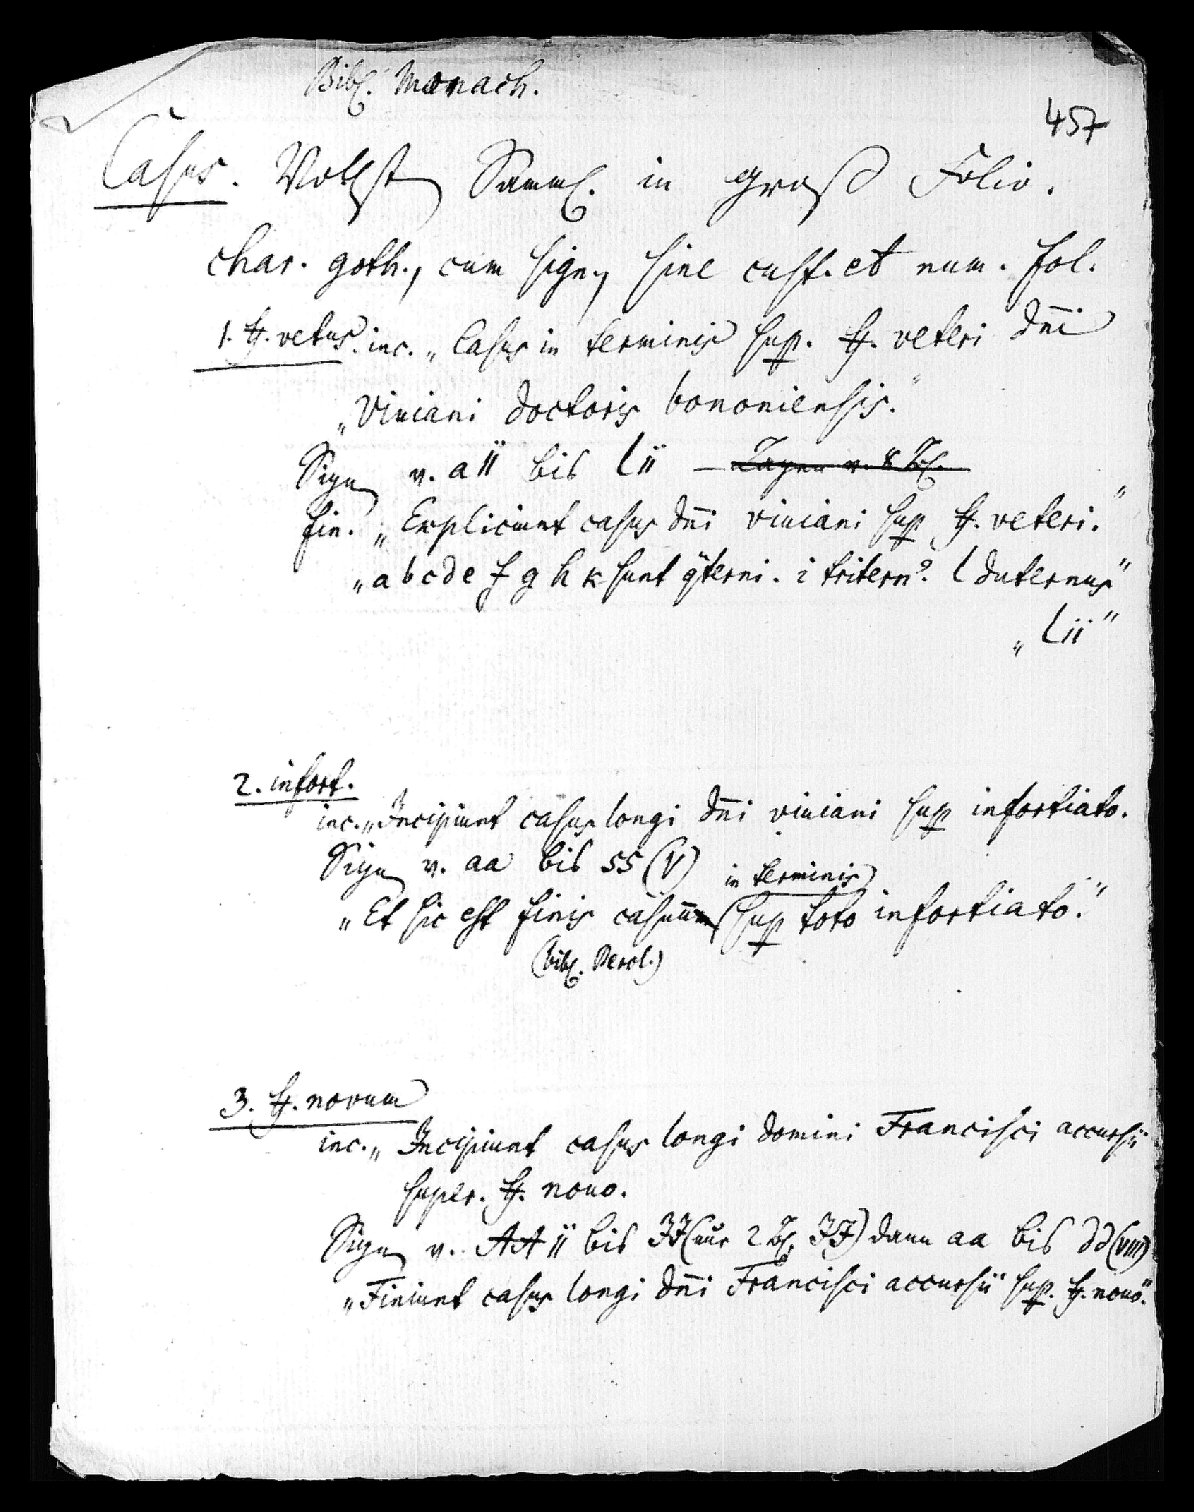 Bibl. Monach.
457
Casus. Vollst Samml. in groß Folio.
char. goth., cum sign, sine cust. et num. fol.
1. ff. vetus. inc. „Casus in terminis sup. ff. veteri dn̄i
„Viuiani doctoris bononiensis."
Sign v. aii bis lii — Lagen v. 8 Bl.
fin. „Expliciunt casus dn̄i viuiani sup ff. veteri."
„a b c d e f g h k sunt q̄terni. i tritern9. l duternus"
„lii"
2. infort.
inc. „Incipiunt casus longi dn̄i viuiani sup infortiato.
Sign v. aa bis ss (V)
in terminis
„Et sic est finis casuum sup toto infortiato."
(bibl. Berol.)
3. ff. novum
inc. „Incipiunt casus longi domini Francisci accursii
super. ff. nouo.
Sign v. AA ii bis JJ (nur 2 Bl. JJ) dann aa bis dd (VIII)
„Finiunt casus longi dn̄i Francisci accursii sup. ff. nouo".